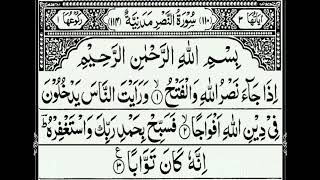 اٰیَاتُهَا ٣ (١١٠) سُوْرَةُ النَّصْرِ مَدَنِيَّةٌ (١١٤) رُكُوْعُهَا ١
بِسْمِ اللّٰهِ الرَّحْمٰنِ الرَّحِيْمِ
اِذَا جَآءَ نَصْرُ اللّٰهِ وَالْفَتْحُ ۙ﴿١﴾ وَرَاَيْتَ النَّاسَ يَدْخُلُوْنَ
فِيْ دِيْنِ اللّٰهِ اَفْوَاجًا ۙ﴿٢﴾ فَسَبِّحْ بِحَمْدِ رَبِّكَ وَاسْتَغْفِرْهُ ؕ
اِنَّهٗ كَانَ تَوَّابًا ﴿٣﴾ ع